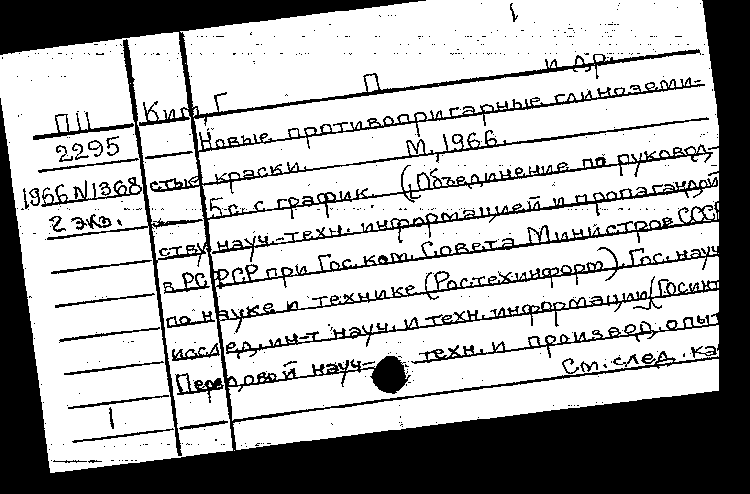 1
ПП Ким, Г П и др.
2295 Новые противопригарные глиноземи-
1966 N1368 стые краски. М., 1966.
2 экз. 15 с. с график. (Объединение по руковод,
ству науч.-техн. информацией и пропагандой
в РСФСР при Гос. ком. Совета Министров СССР
по науке и технике (Ростехинформ). Гос. науч
исслед. ин-т науч. и техн. информации (Госинт
Передовой науч- техн. и производ. опыт
1 См. след. ка